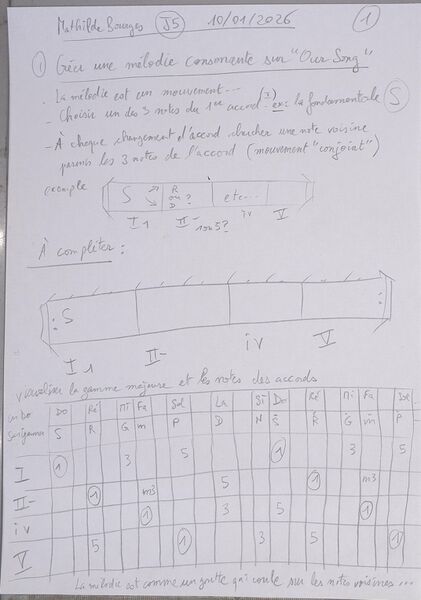 Mathilde Bourges J5 10/01/2026 1
① Créer une mélodie consonante sur "Our Song"
- La mélodie est un mouvement...
- Choisir un des 3 notes du 1er accord (I) - ex: la fondamentale S
- À chaque changement d'accord chercher une note voisine
parmi les 3 notes de l'accord (mouvement "conjoint")
exemple
S R ou D ? etc...
I 1 II- 1 ou 5? iv V
À compléter :
: S :
I 1 II- iv V
visualiser la gamme majeure et les notes des accords
en Do Do Ré Mi Fa Sol La Si Do Ré Mi Fa Sol
Sargam S R G m P D N S R G m P
I 1 3 5 1 3 5
II- 1 m3 5 1 m3
iv 1 3 5 1
V 5 1 3 5 1
La mélodie est comme une goutte qui coule sur les notes voisines...